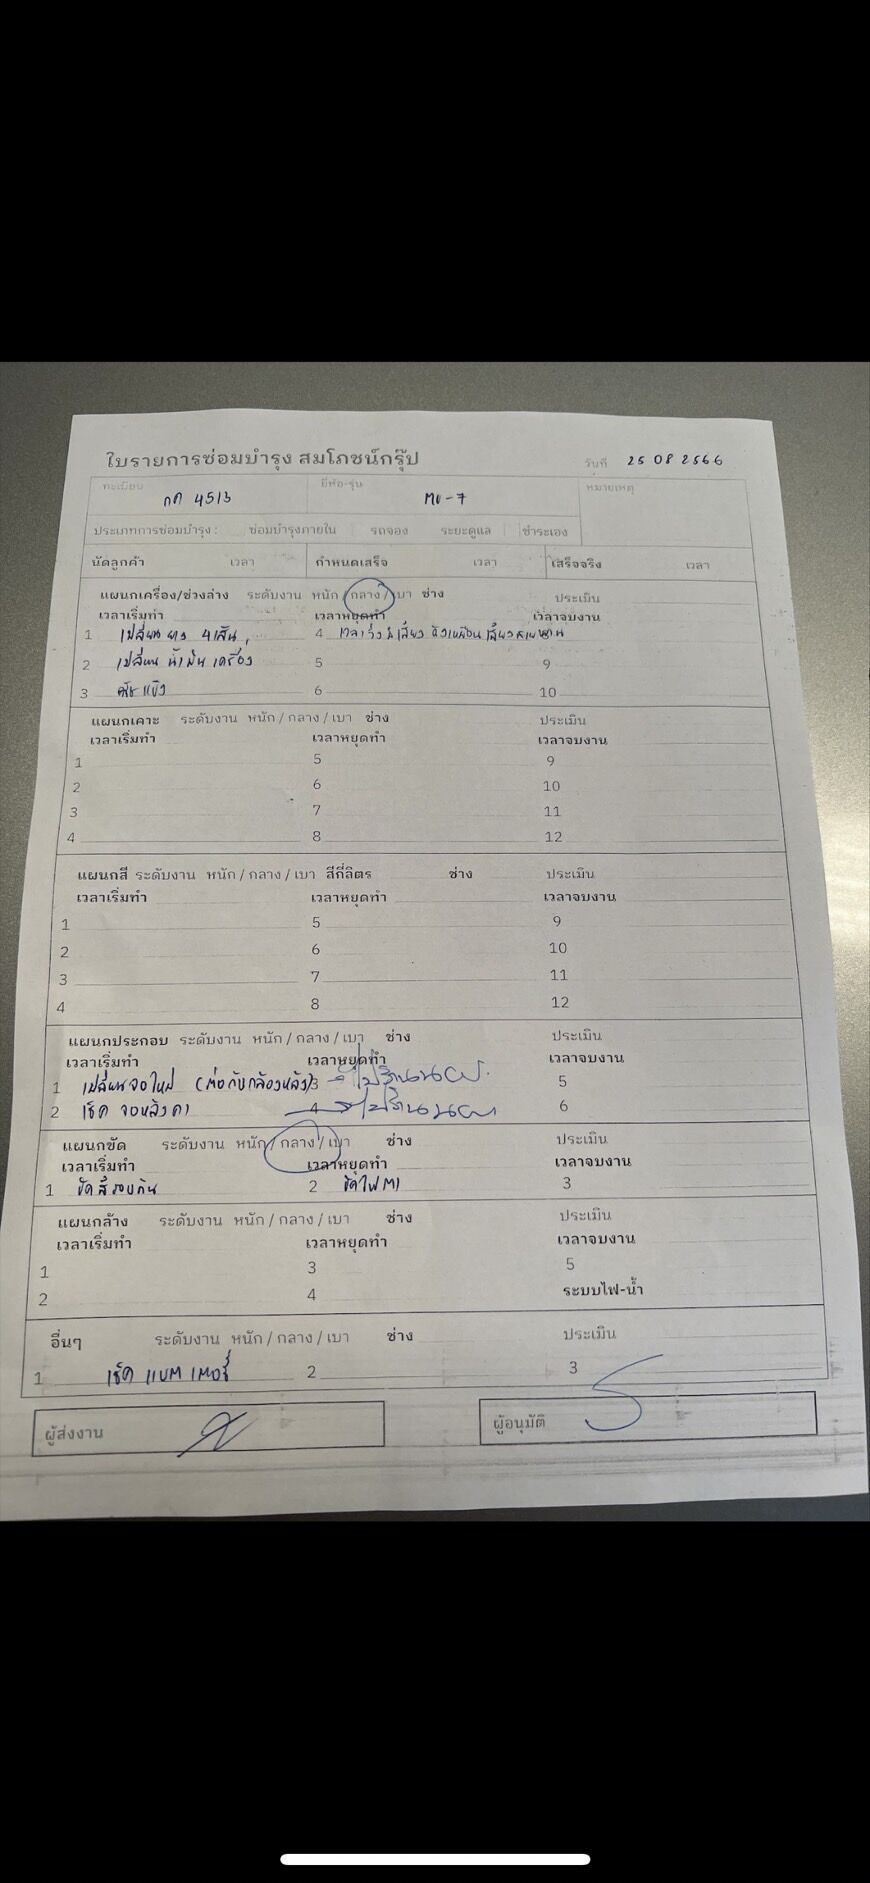 ใบรายการซ่อมบำรุง สมโภชน์กรุ๊ป
วันที่ 25 08 2566
ทะเบียน กค 4513 ยี่ห้อ-รุ่น MU-7 หมายเหตุ
ประเภทการซ่อมบำรุง : ซ่อมบำรุงภายใน รถจอง ระยะดูแล ชำระเอง
นัดลูกค้า เวลา กำหนดเสร็จ เวลา เสร็จจริง เวลา
แผนกเครื่อง/ช่วงล่าง ระดับงาน หนัก / กลาง / เบา ช่าง ประเมิน
เวลาเริ่มทำ เวลาหยุดทำ เวลาจบงาน
1 เปลี่ยน ยาง 4 เส้น 4 เวลาวิ่งมีเสียง ดังเหมือนเสียง
2 เปลี่ยน น้ำมัน เครื่อง 5 9
3 6 10
แผนกเคาะ ระดับงาน หนัก / กลาง / เบา ช่าง ประเมิน
เวลาเริ่มทำ เวลาหยุดทำ เวลาจบงาน
1 5 9
2 6 10
3 7 11
4 8 12
แผนกสี ระดับงาน หนัก / กลาง / เบา สีกี่ลิตร ช่าง ประเมิน
เวลาเริ่มทำ เวลาหยุดทำ เวลาจบงาน
1 5 9
2 6 10
3 7 11
4 8 12
แผนกประกอบ ระดับงาน หนัก / กลาง / เบา ช่าง ประเมิน
เวลาเริ่มทำ เวลาหยุดทำ เวลาจบงาน
1 เปลี่ยนจอใหม่ (ต่อกับกล้องหลัง) 3 5
2 เช็ค จอหลังคา 4 6
แผนกขัด ระดับงาน หนัก / กลาง / เบา ช่าง ประเมิน
เวลาเริ่มทำ เวลาหยุดทำ เวลาจบงาน
1 ขัดสีรอบคัน 2 ขัดไฟตา 3
แผนกล้าง ระดับงาน หนัก / กลาง / เบา ช่าง ประเมิน
เวลาเริ่มทำ เวลาหยุดทำ เวลาจบงาน
1 3 5
2 4 ระบบไฟ-น้ำ
อื่นๆ ระดับงาน หนัก / กลาง / เบา ช่าง ประเมิน
1 เช็ค แบตเตอรี่ 2 3
ผู้ส่งงาน ผู้อนุมัติ